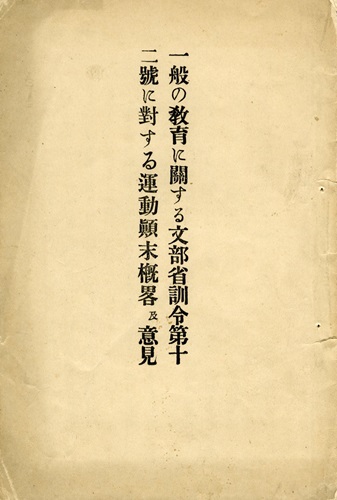 一般の教育に關する文部省訓令第十
二號に對する運動顚末槪畧及意見